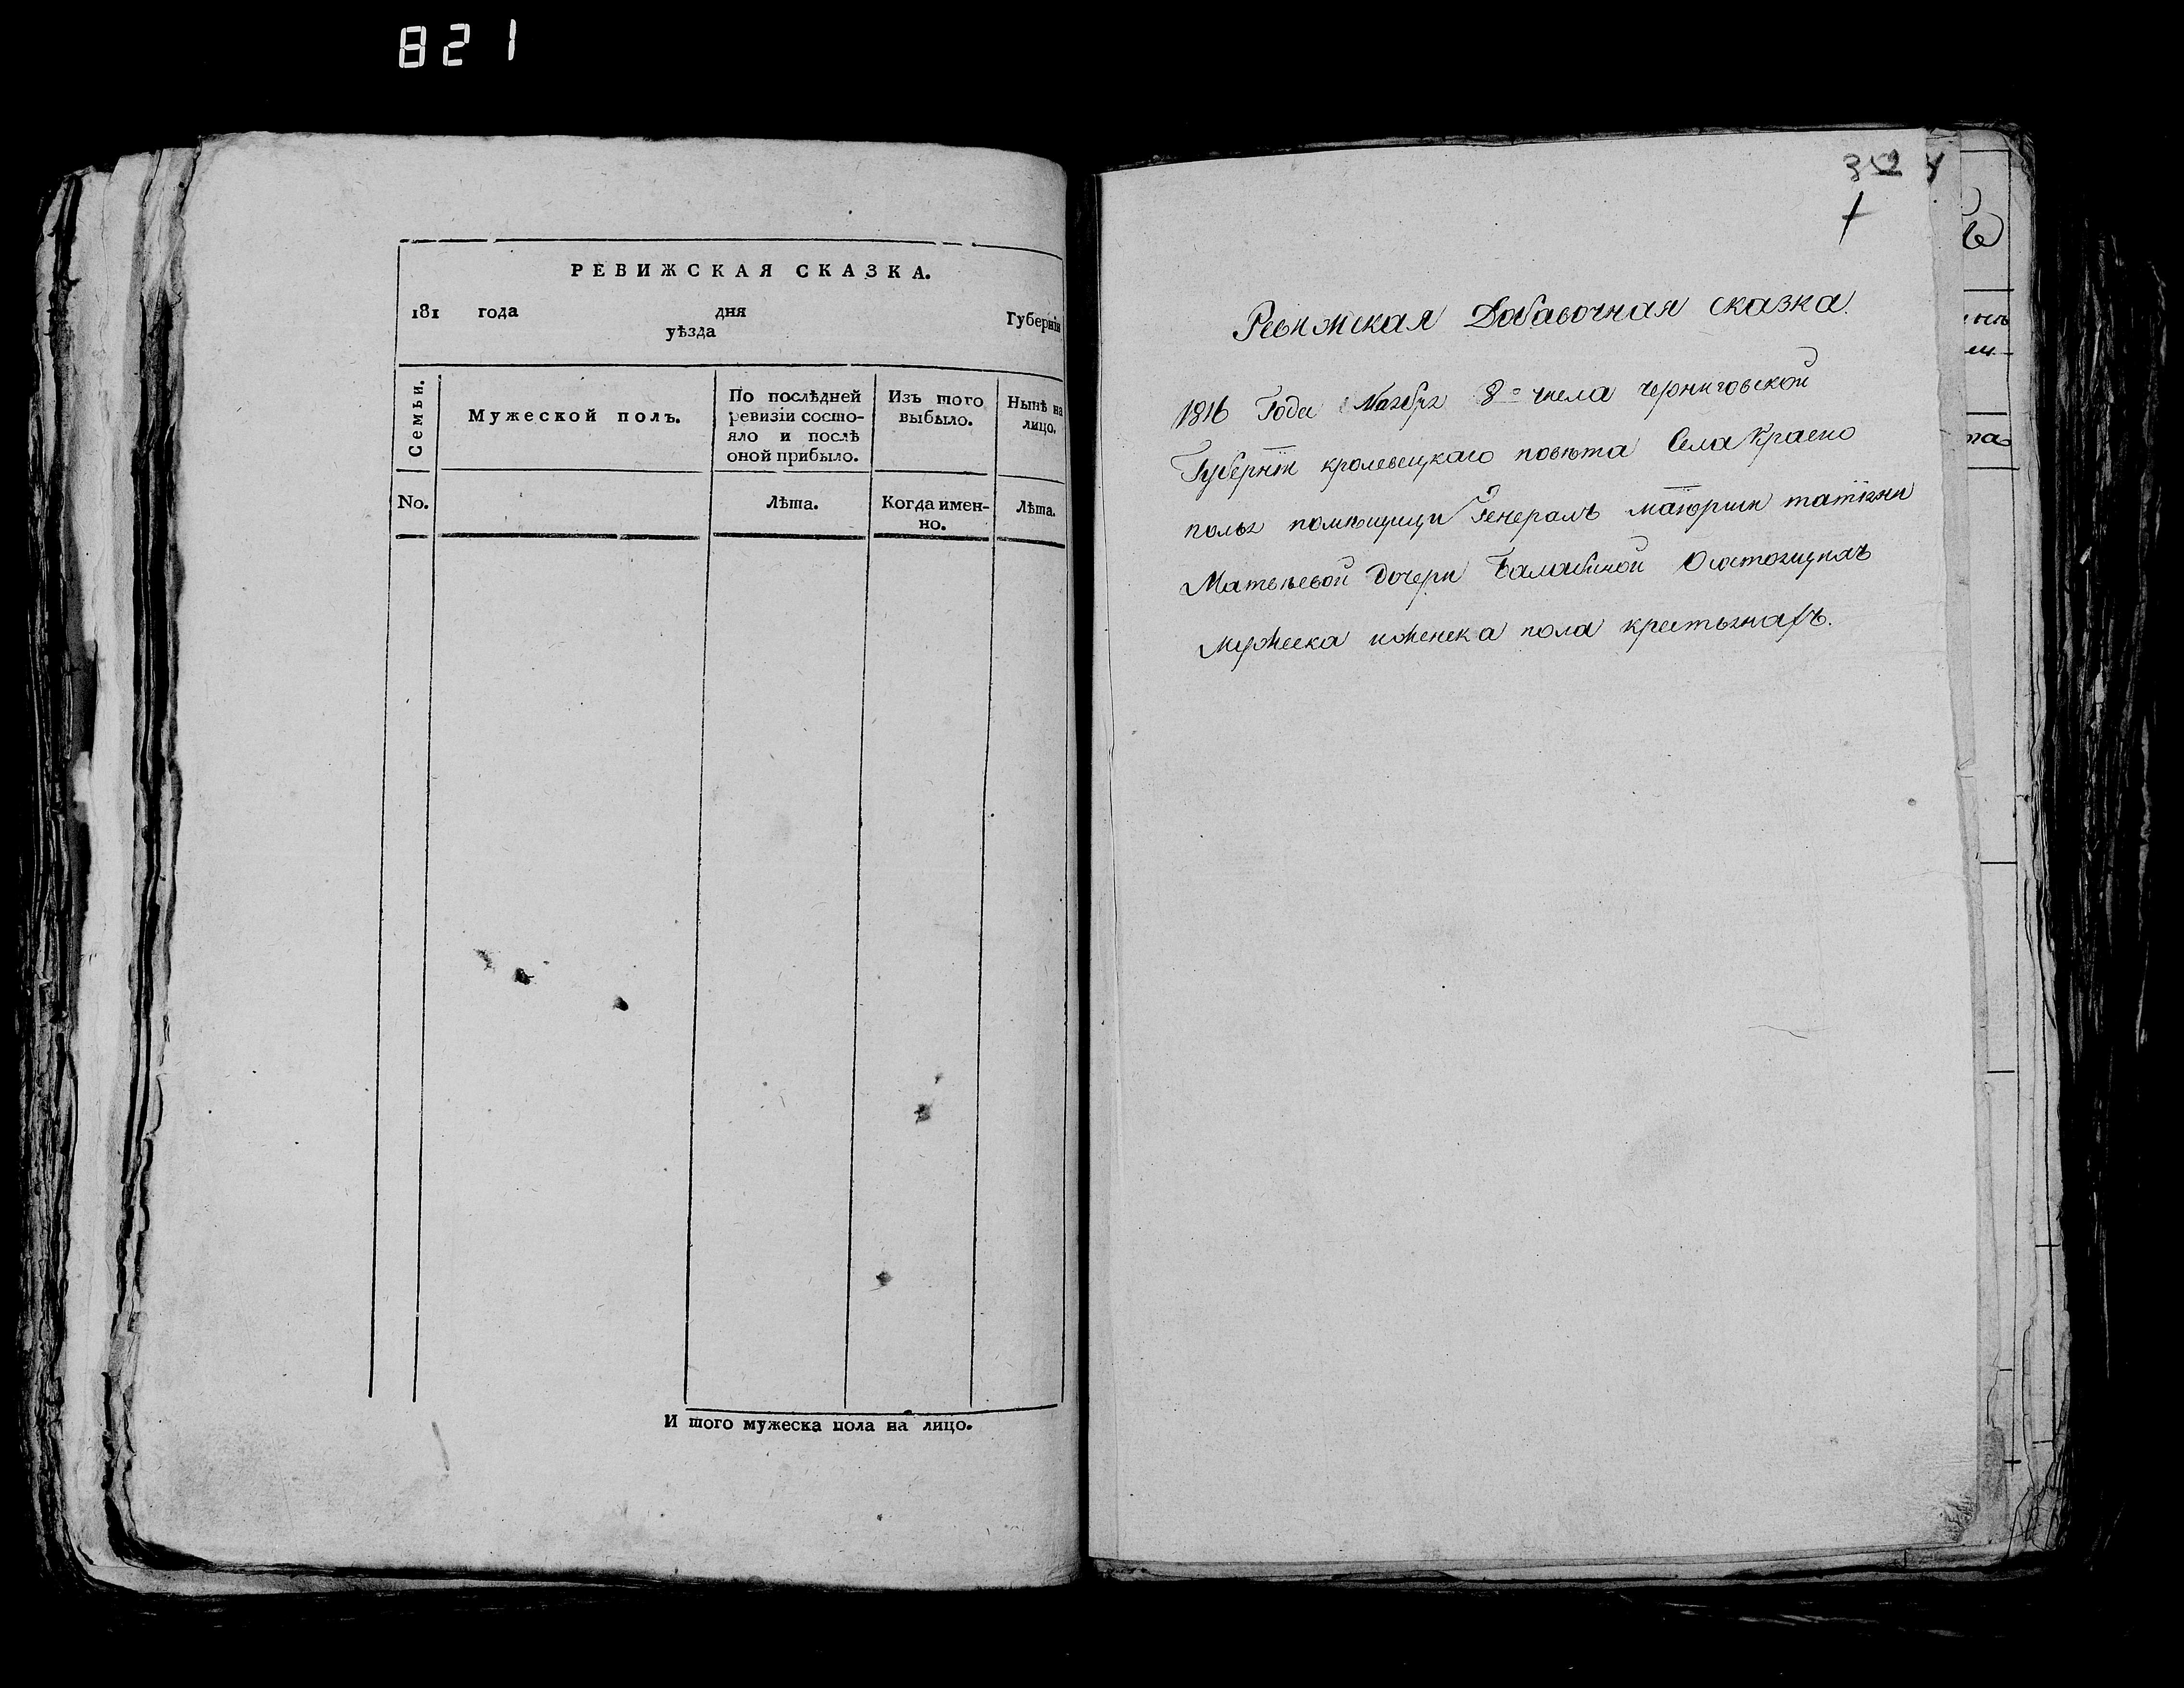 821
РЕВИЖСКАЯ СКАЗКА.
181 года дня Губернїи
уѣзда
Семьи.
Мужеской полъ.
По послѣдней ревизїи состо-
яло и послѣ
оной прибыло.
Изъ того
выбыло.
Нынѣ на
лицо.
No.
Лѣта.
Когда имен-
но.
Лѣта.
И того мужеска пола на лицо.
352
Ревижская Добавочная сказка.
1816 Года Ноября 8го числа черниговской
Губернїи кролевецкаго повѣта Села Красно
полья помѣщици Генералъ маіорши татіяни
Матвѣевой дочери Балабиной О состоящихъ
мужеска и женска пола крестьянахъ.